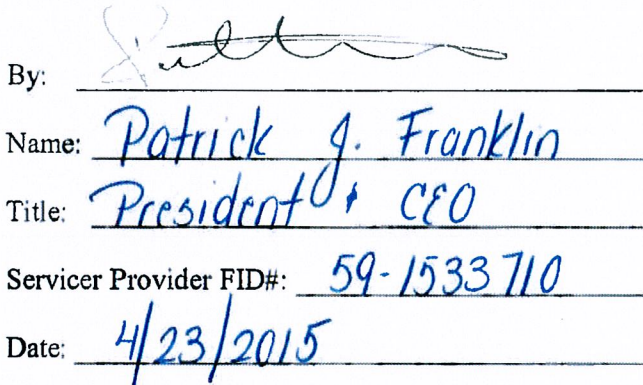 By:
Name: Patrick J. Franklin
Title: President & CEO
Servicer Provider FID#: 59-1533710
Date: 4/23/2015